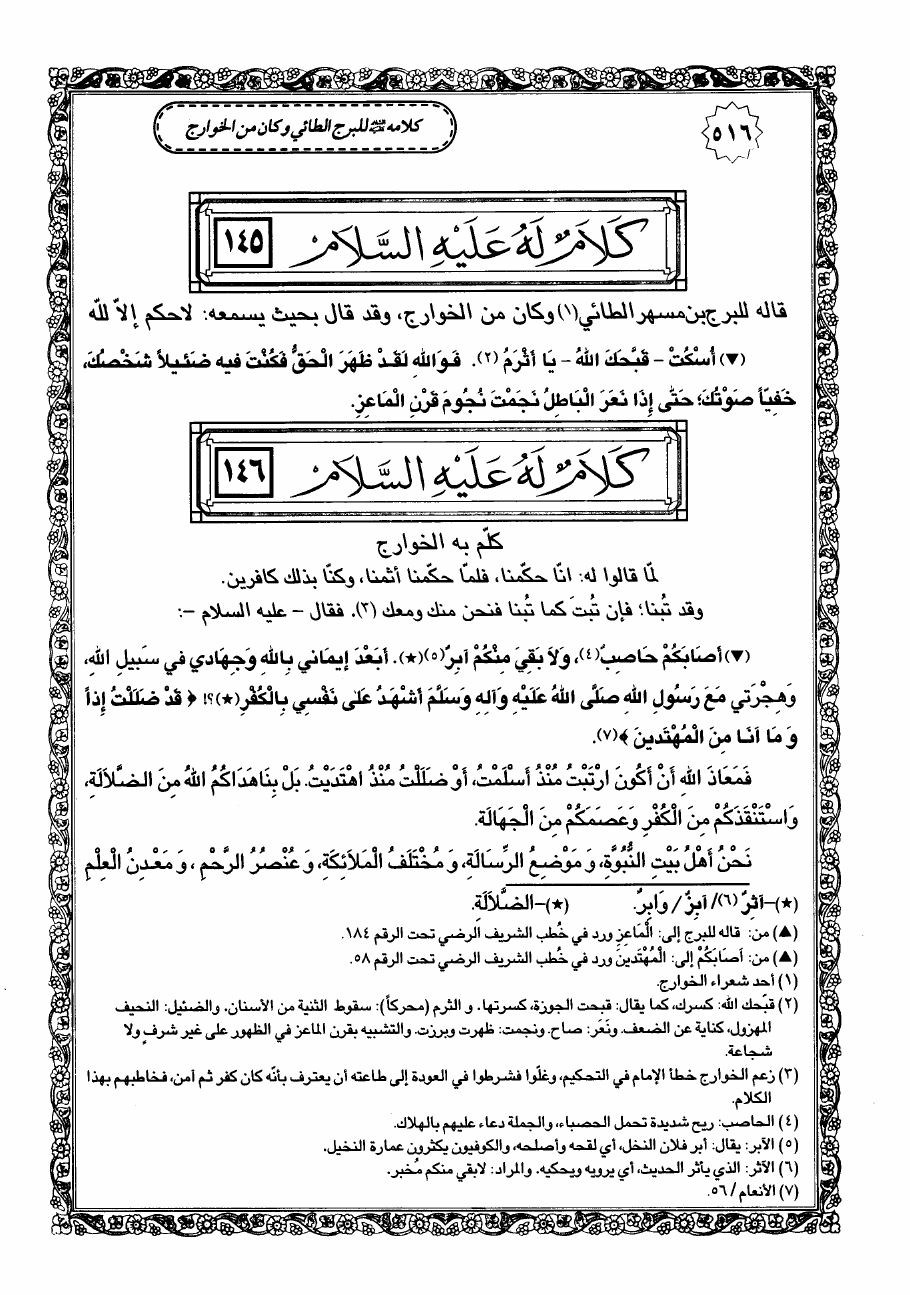 ٥١٦
كلامه ﷺ للبرج الطائي وكان من الخوارج
كَلَامٌ لَهُ عَلَيْهِ السَّلَامُ
١٤٥
قاله للبرج بن مسهر الطائي (١) وكان من الخوارج، وقد قال بحيث يسمعه: لاحكم إلاّ للّه
(▼) أُسْكُتْ - قَبَّحَكَ اللهُ - يَا أَثْرَمُ (٢). فَوَاللهِ لَقَدْ ظَهَرَ الْحَقُّ فَكُنْتَ فيهِ ضَئيلاً شَخْصُكَ،
خَفِيّاً صَوْتُكَ؛ حَتَّى إِذَا نَعَرَ الْبَاطِلُ نَجَمْتَ نُجُومَ قَرْنِ الْمَاعِزِ.
كَلَامٌ لَهُ عَلَيْهِ السَّلَامُ
١٤٦
كلّم به الخوارج
لمّا قالوا له: انّا حكّمنا، فلمّا حكّمنا أثمنا، وكنّا بذلك كافرين.
وقد تُبنا؛ فإن تُبتَ كما تُبنا فنحن منك ومعك (٣). فقال - عليه السلام -:
(▼) أَصَابَكُمْ حَاصِبٌ (٤)، وَلاَ بَقِيَ مِنْكُمْ آبِرٌ (٥)(★). أَبَعْدَ إيمَاني بِاللهِ وَجِهَادي في سَبيلِ اللهِ،
وَهِجْرَتي مَعَ رَسُولِ اللهِ صَلَّى اللهُ عَلَيْهِ وَآلِهِ وَسَلَّمَ أَشْهَدُ عَلىٰ نَفْسي بِالْكُفْرِ (★)؟! ﴿ قَدْ ضَلَلْتُ إِذاً
وَ مَا أَنَا مِنَ الْمُهْتَدينَ ﴾(٧).
فَمَعَاذَ اللهِ أَنْ أَكُونَ ارْتَبْتُ مُنْذُ أَسْلَمْتُ، أَوْ ضَلَلْتُ مُنْذُ اهْتَدَيْتُ. بَلْ بِنَا هَدَاكُمُ اللهُ مِنَ الضَّلاَلَةِ،
وَاسْتَنْقَذَكُمْ مِنَ الْكُفْرِ وَعَصَمَكُمْ مِنَ الْجَهَالَةِ.
نَحْنُ أَهْلُ بَيْتِ النُّبُوَّةِ، وَ مَوْضِعُ الرِّسَالَةِ، وَ مُخْتَلَفُ الْمَلاَئِكَةِ، وَ عُنْصُرُ الرَّحْمِ ، وَ مَعْدِنُ الْعِلْمِ
(★)-آثِرٌ (٦)/ آبِزٌ / وَابِرٌ. (★)-الضَّلاَلَةِ.
(▲) من: قاله للبرج إلى: الْمَاعِزِ ورد في خُطب الشريف الرضي تحت الرقم ١٨٤.
(▲) من: أَصَابَكُمْ إلى: الْمُهْتَدينَ ورد في خُطب الشريف الرضي تحت الرقم ٥٨.
(١) أحد شعراء الخوارج.
(٢) قبّحك الله: كسرك، كما يقال: قبحت الجوزة، كسرتها. و الثرم (محركاً): سقوط الثنية من الأسنان. والضئيل: النحيف
المهزول، كناية عن الضعف. ونَعَرَ: صاح. ونجمت: ظهرت وبرزت. والتشبيه بقرن الماعز في الظهور على غير شرف ولا
شجاعة.
(٣) زعم الخوارج خطأ الإمام في التحكيم، وغلّوا فشرطوا في العودة إلى طاعته أن يعترف بأنّه كان كفر ثم آمن، فخاطبهم بهذا
الكلام.
(٤) الحاصب: ريح شديدة تحمل الحصباء، والجملة دعاء عليهم بالهلاك.
(٥) الآبر: يقال: أبر فلان النخل، أي لقحه وأصلحه، والكوفيون يكثرون عمارة النخيل.
(٦) الآثر: الذي يأثر الحديث، أي يرويه ويحكيه. والمراد: لابقي منكم مُخبر.
(٧) الأنعام / ٥٦.